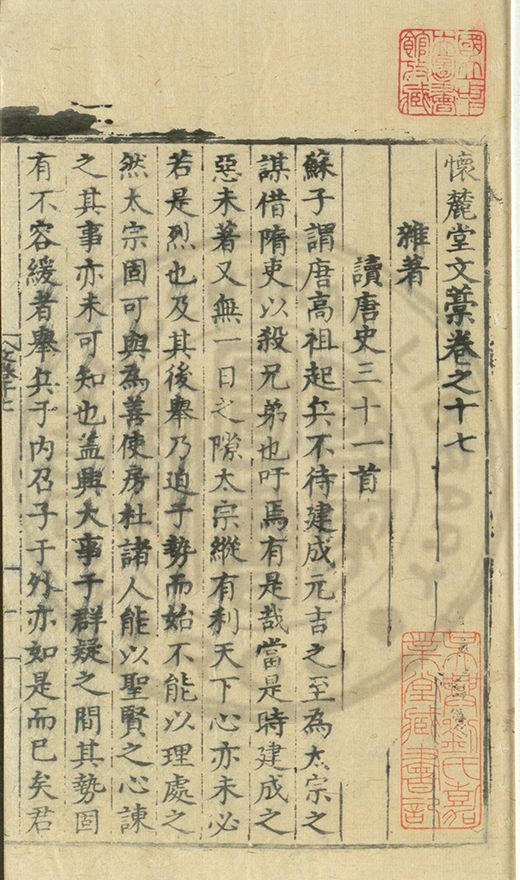 國立中
央圖書
館收藏
懷麓堂文藁卷之十七
吳興劉氏嘉
業堂藏書印
雜著
讀唐史三十一首
蘇子謂唐高祖起兵不待建成元吉之至為太宗之
謀借隋吏以殺兄弟也吁焉有是哉當是時建成之
惡未著又無一日之隙太宗縱有利天下心亦未必
若是烈也及其後舉乃迫于勢而始不能以理處之
然太宗固可與為善使房杜諸人能以聖賢之心諫
之其事亦未可知也盖興大事于群疑之間其勢固
有不容緩者舉兵于内召子于外亦如是而已矣君